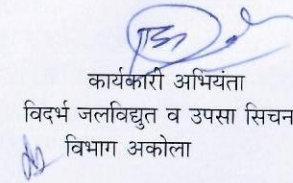 कार्यकारी अभियंता
विदर्भ जलविद्युत व उपसा सिचन
विभाग अकोला